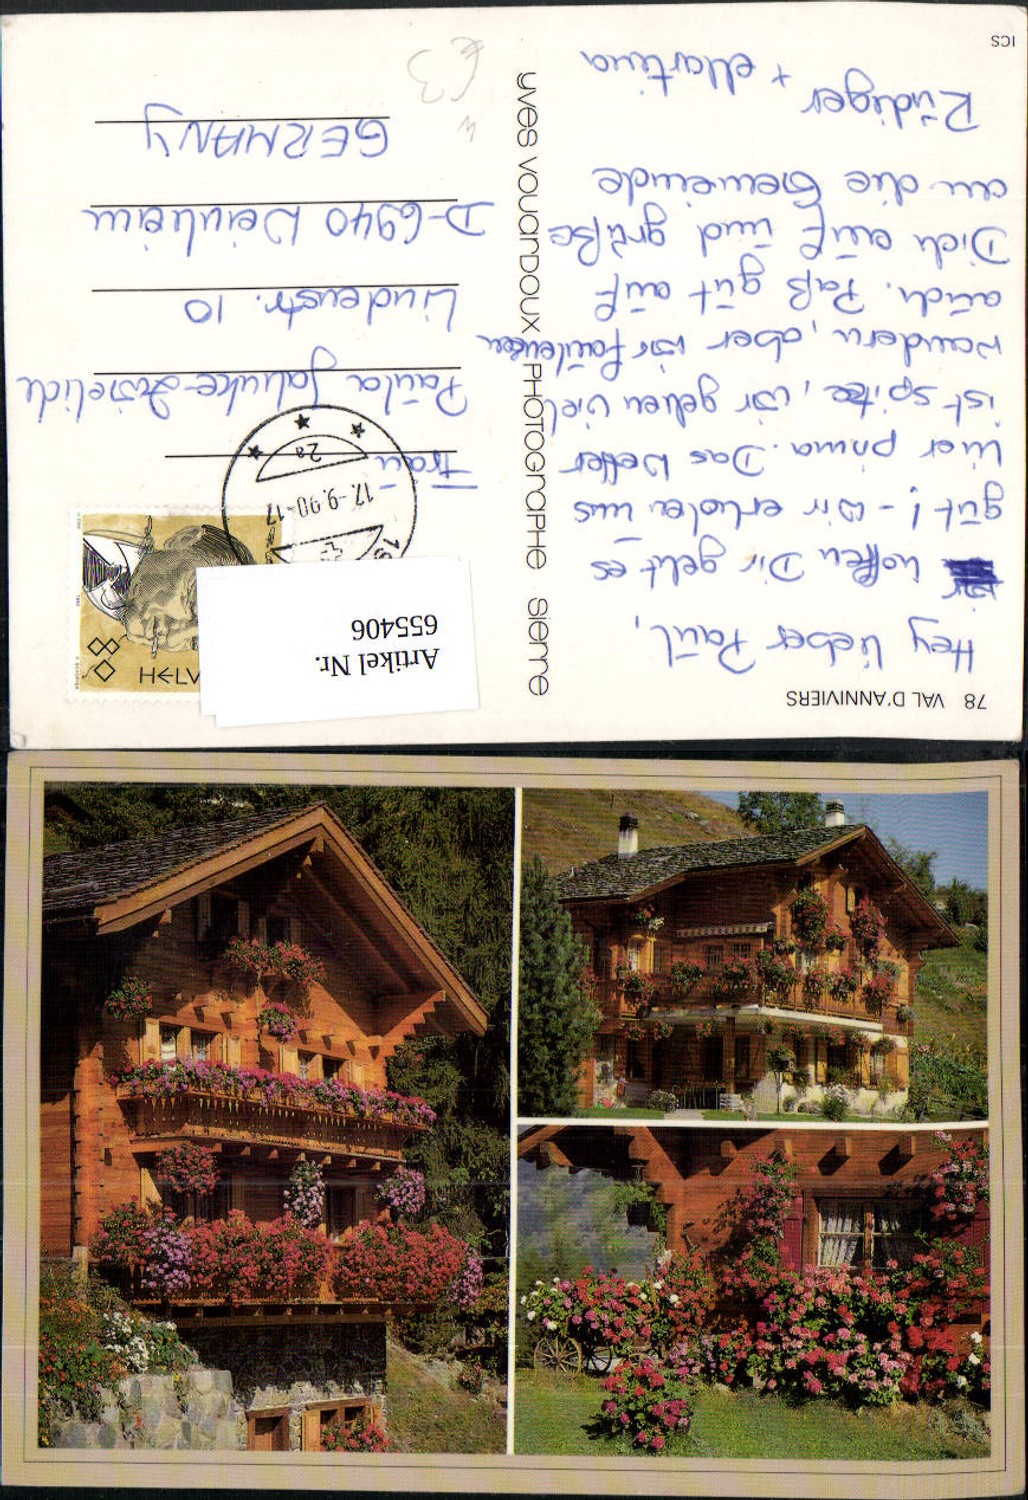 78 VAL D'ANNIVIERS
Hey lieber Paul,
hoffen Dir geht es
gut! - Wir erholen uns
hier prima. Das Wetter
ist spitze, wir gehen viel
wandern, aber wir faulenzen
auch. Paß gut auf
Dich auf und grüße
an die Gemeinde
Rüdiger
+ Martina
ICS
yves vouardoux PHOTOGRAPHE sierre
Artikel Nr.
655406
17.-9.90-17
2a
Frau
Paula
Lindenstr. 10
D-6940 Weinheim
GERMANY
€3